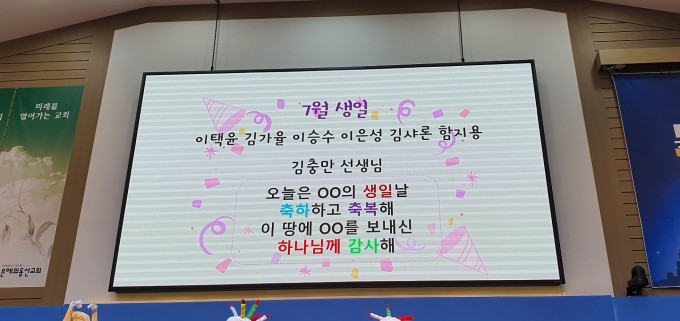 7월 생일
이택윤 김가율 이승수 이은성 김샤론 함지용
김충만 선생님
오늘은 OO의 생일날
축하하고 축복해
이 땅에 OO를 보내신
하나님께 감사해
미래를
열어가는 교회
은혜의동산교회